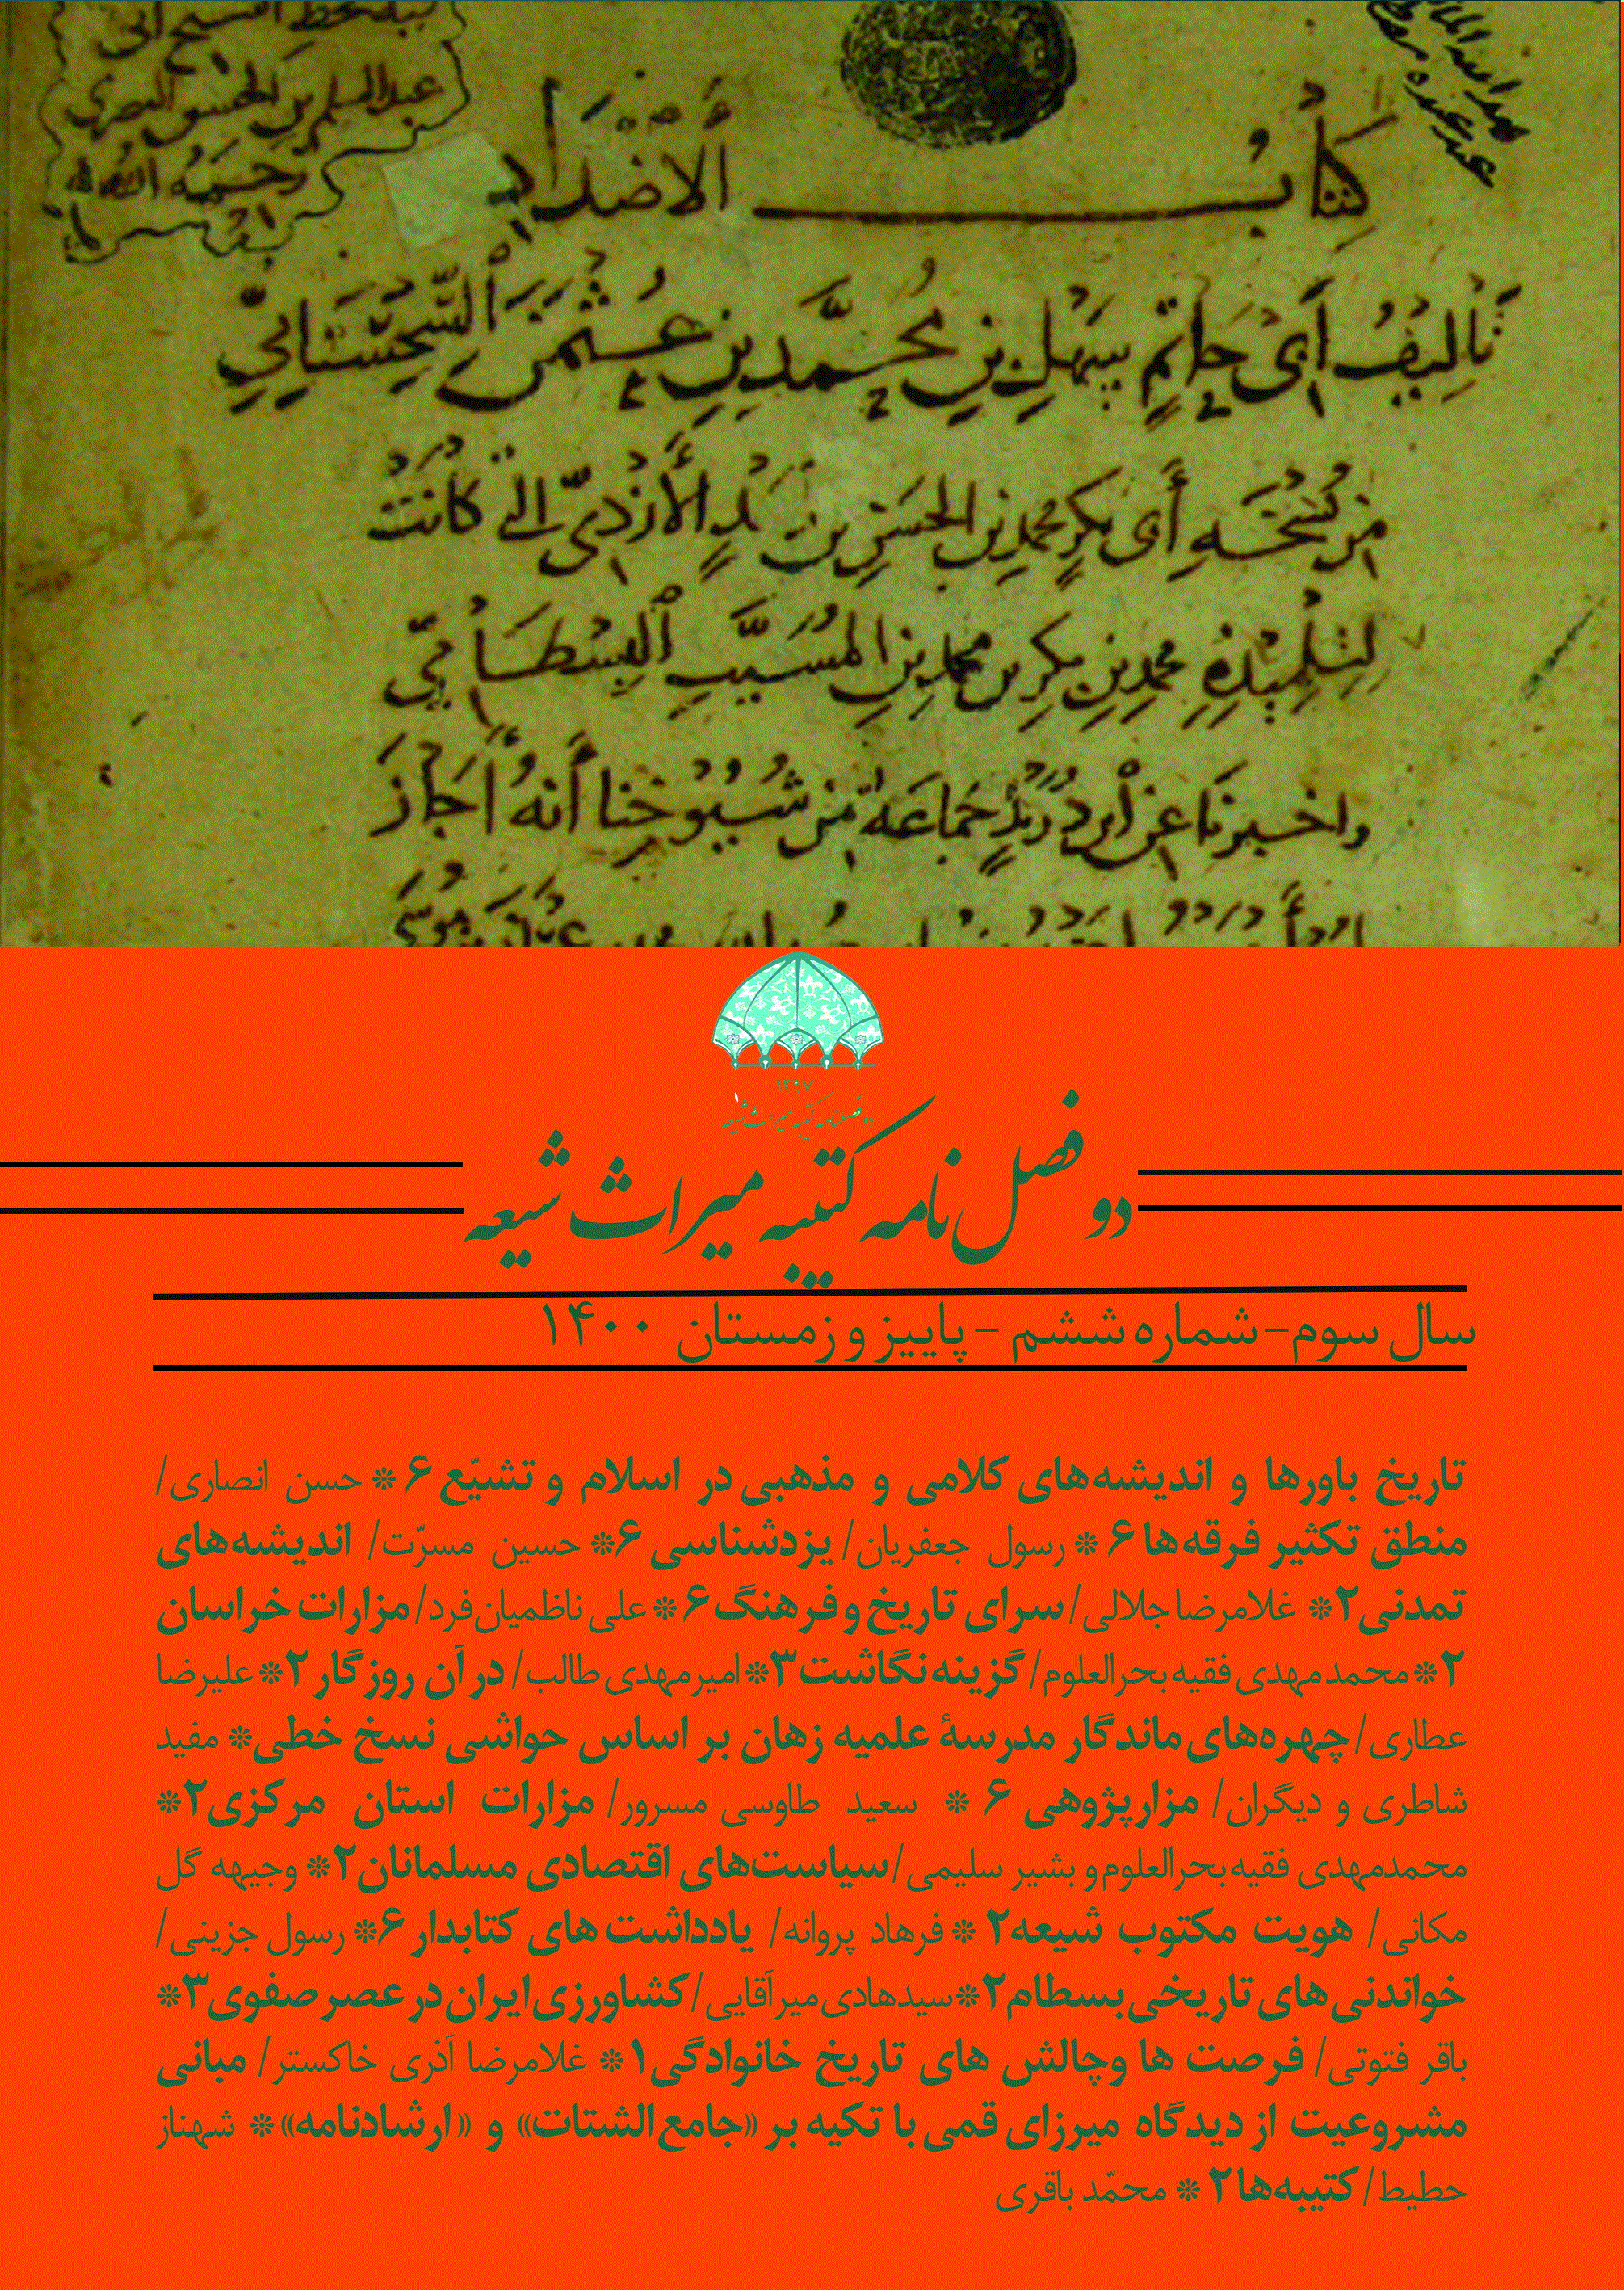 لله بخط الشيخ أبي
عبد السلم بن الحسن البصري
رحمه الله
كتاب الأضداد
تأليف أبي حاتم سهل بن محمد بن عثمن السجستاني
من نسخة أبي بكر محمد بن الحسن بن دريد الأزدي التي كانت
لتلميذه محمد بن بكر بن محمد بن المسيب البسطامي
واخبرنا عن ابن دريد جماعة من شيوخنا أنه أجاز
۱۳۹۷
دوفصلنامه کتیبه میراث شیعه
دو فصل نامه کتیبه میراث شیعه
سال سوم- شماره ششم - پاییز و زمستان ۱۴۰۰
تاریخ باورها و اندیشه‌های کلامی و مذهبی در اسلام و تشیّع ۶ * حسن انصاری/
منطق تکثیر فرقه‌ها ۶ * رسول جعفریان/ یزدشناسی ۶* حسین مسرّت/ اندیشه‌های
تمدنی۲* غلامرضا جلالی/ سرای تاریخ و فرهنگ ۶ * علی ناظمیان‌فرد/ مزارات خراسان
۲* محمدمهدی فقیه بحرالعلوم/ گزینه نگاشت ۳* امیرمهدی طالب/ در آن روزگار ۲* علیرضا
عطاری/ چهره‌های ماندگار مدرسهٔ علمیه زهان بر اساس حواشی نسخ خطی* مفید
شاطری و دیگران/ مزارپژوهی ۶ * سعید طاوسی مسرور/ مزارات استان مرکزی۲*
محمدمهدی فقیه بحرالعلوم و بشیر سلیمی/ سیاست‌های اقتصادی مسلمانان۲* وجیهه گل
مکانی/ هویت مکتوب شیعه۲ * فرهاد پروانه/ یادداشت های کتابدار ۶* رسول جزینی/
خواندنی های تاریخی بسطام۲* سیدهادی میرآقایی/ کشاورزی ایران در عصر صفوی۳*
باقر فتوتی/ فرصت ها وچالش های تاریخ خانوادگی۱ * غلامرضا آذری خاکستر/ مبانی
مشروعیت از دیدگاه میرزای قمی با تکیه بر «جامع الشتات» و «ارشادنامه» * شهناز
حطیط/ کتیبه‌ها ۲ * محمّد باقری